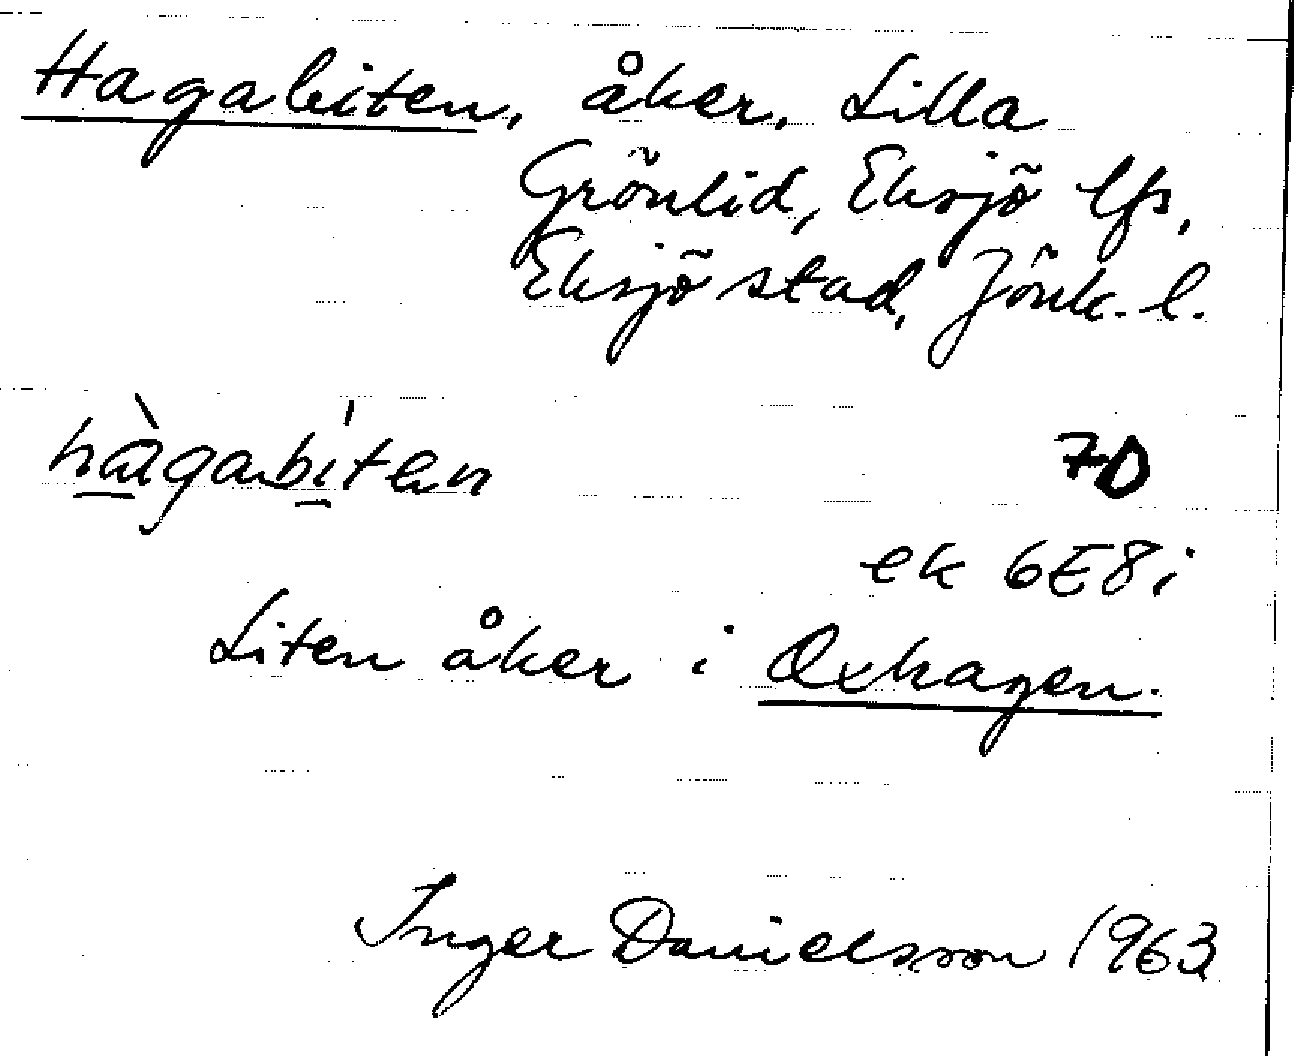 Hagabiten, åker, Lilla
Grönlid, Eksjö lfs,
Eksjö stad, Jönk. l.
hàgabíten
7D
ek 6E8i
Liten åker i Oxhagen.
Inger Danielsson 1963